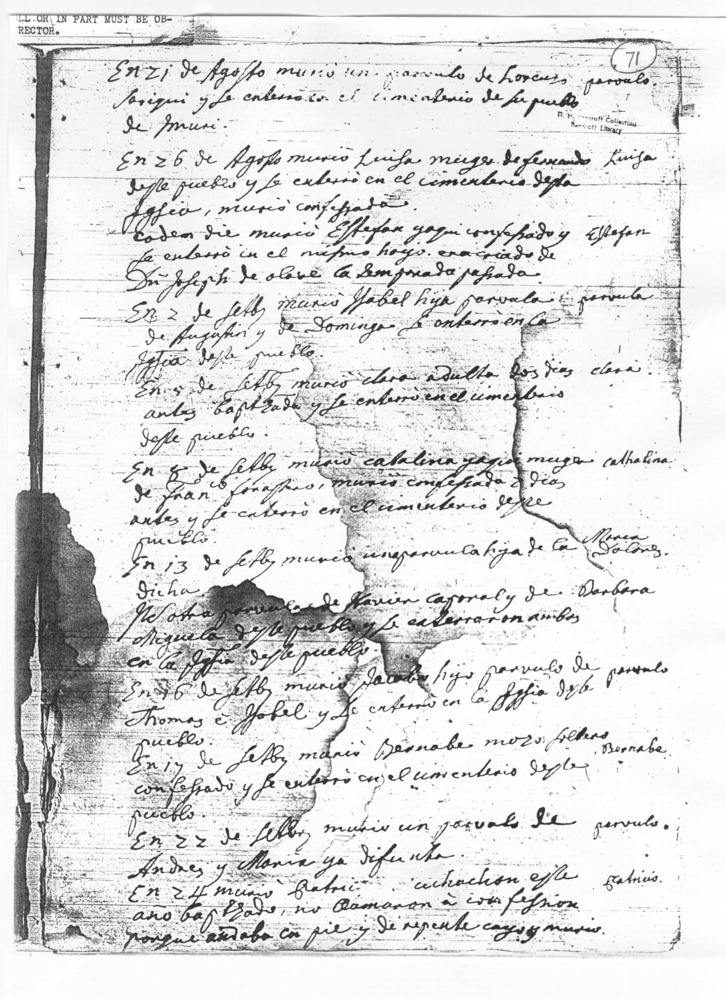 LL OR IN PART MUST BE OB-
RECTOR.
71
En 21 de Agosto murio un parvulo de Lorenzo parvulo.
y se enterro en el cimenterio de su pueblo
de Imuri.
Bancroft Collection
Bancroft Library
En 26 de Agosto murio Luisa muger de fernando Luisa
deste pueblo y se enterro en el cimenterio desta
Iglsia, murio confessada.
eodem die murio Estefan yaqui confessado y Estefan
se enterro en el mismo hoyo. era criado de
Dn Joseph de olave la temporada passada
En 2 de setbre murio Ysabel hija parvula parvula
de Augustin y de Dominga se enterro en la
Iglsia deste pueblo.
En 5 de setbre murio clara adulta dos dias clara.
antes baptzada y se enterro en el cimenterio
deste pueblo.
En 8 de setbre murio catalina yaqui muger cathalina
de franco forastro, murio confessada 2 dias
antes y se enterro en el cimenterio deste
pueblo.
En 13 de setbre murio una parvula hija de la Maria Dolores.
dicha
otra parvula de Xavier caporal y de Barbara
Miguela deste pueblo y se enterraron ambas
en la Iglsia deste pueblo.
En 16 de setbre murio Jacobo hijo parvulo de parvulo
Thomas e Ysabel y se enterro en la Iglsia deste
pueblo.
En 17 de setbre murio Bernabe mozo soltero Bernabe.
confessado y se enterro en el cimenterio deste
pueblo.
En 22 de setbre murio un parvulo de parvulo.
Andres y Maria ya difunta.
En 24 murio Patricio este Patricio.
año baptzado, no llamaron a confession
porque andaba en pie y de repente cayo y murio.